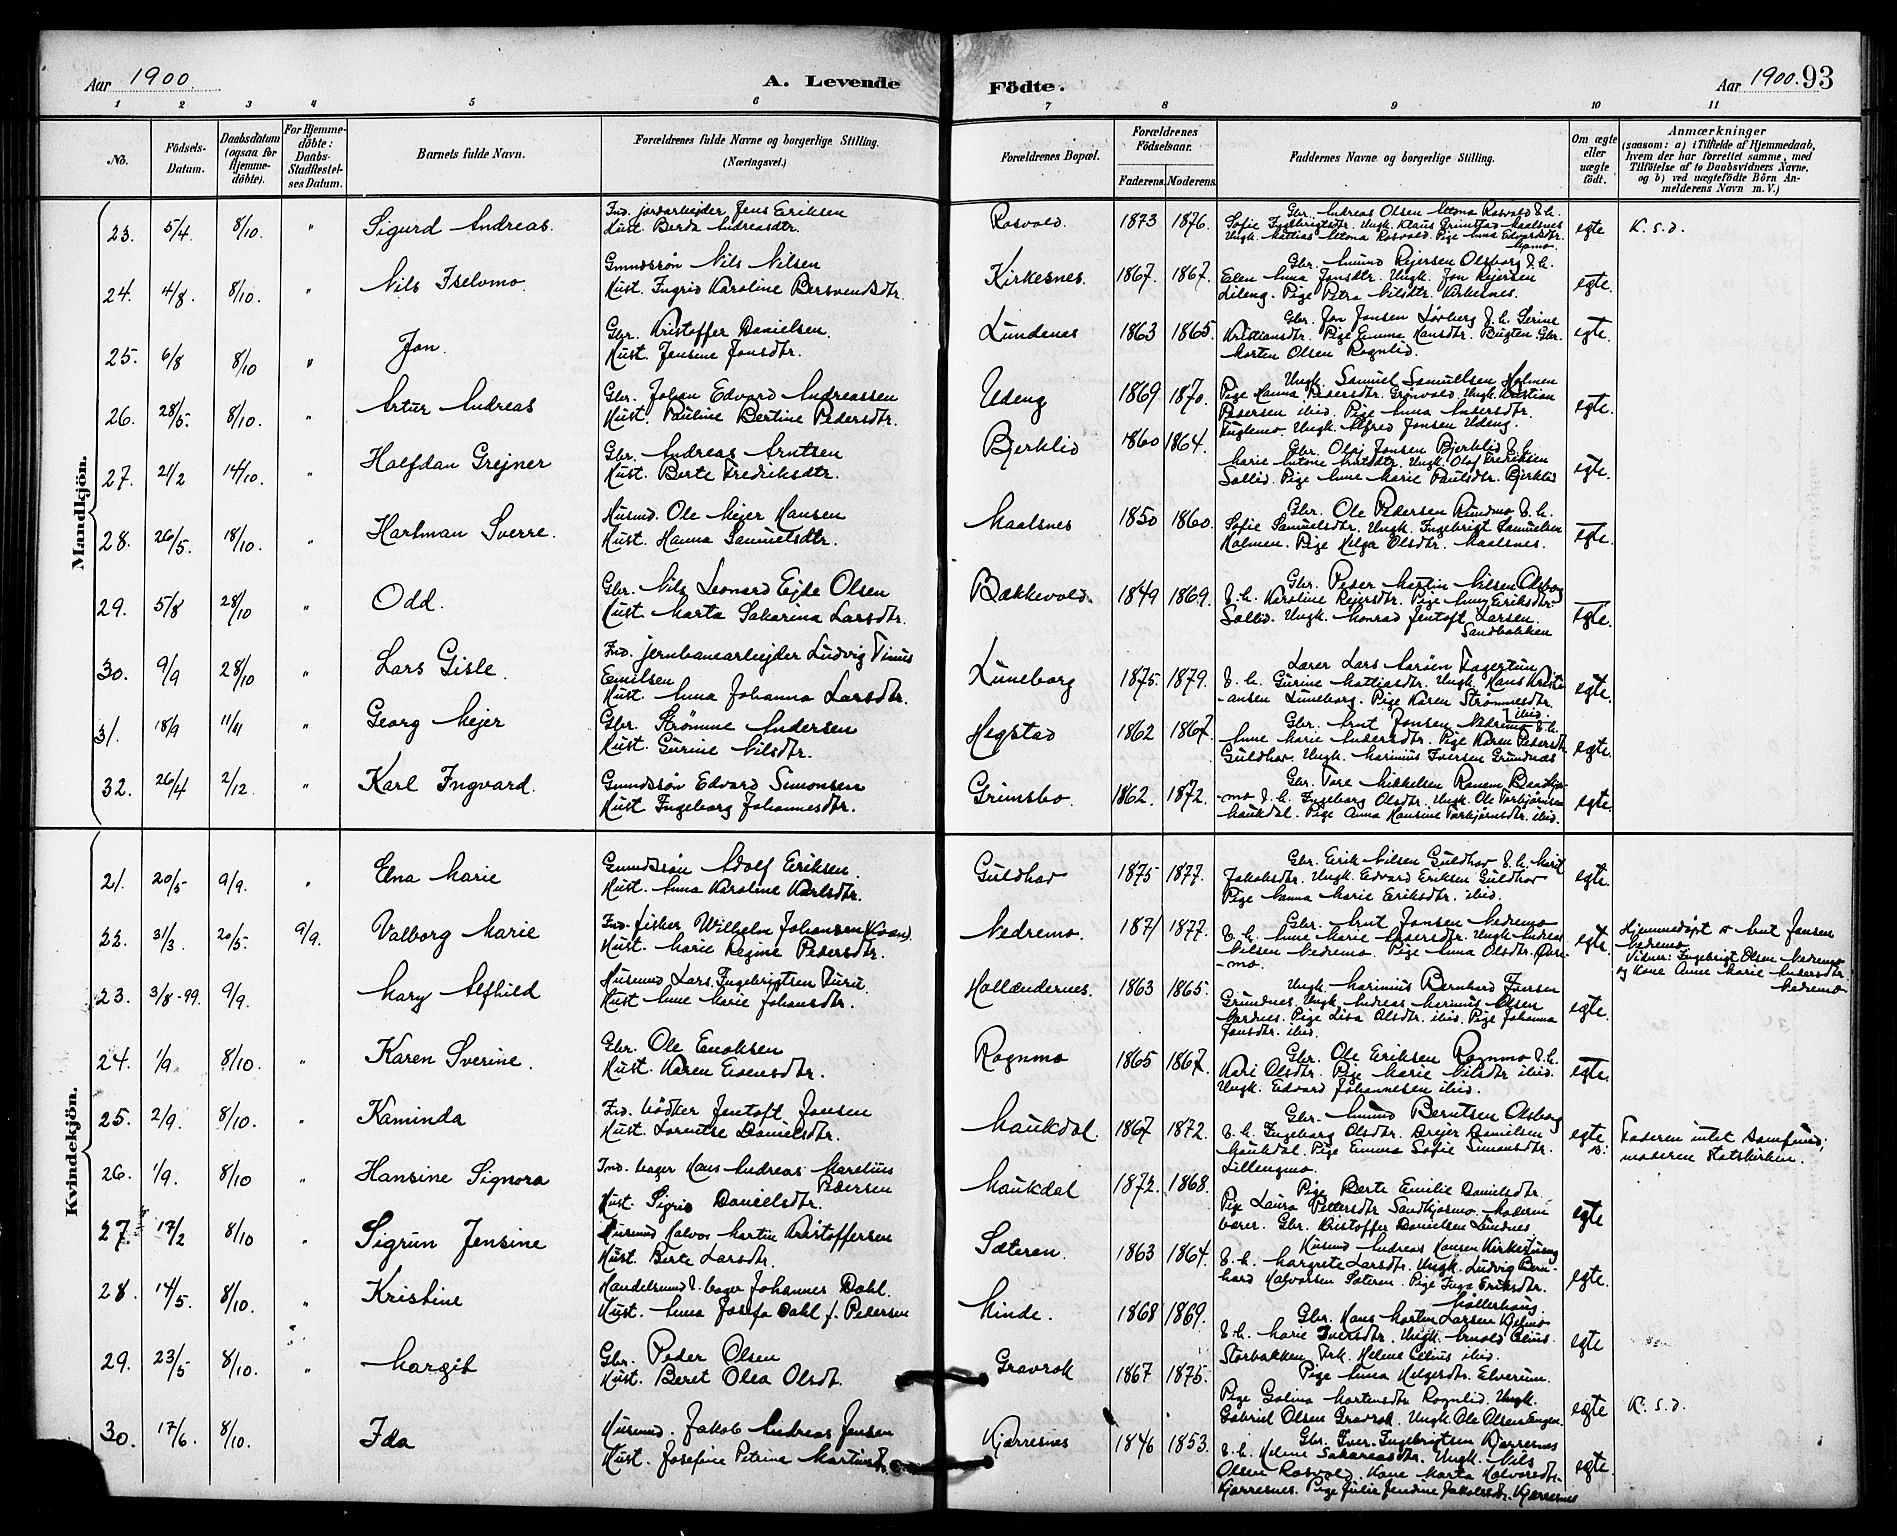 Aar 1900.
A. Levende
Födte.
Aar 1900. 93
1 2 3 4 5 6 7 8 9 10 11
No.
Födsels-Datum.
Daabsdatum (ogsaa for Hjemme-döbte).
For Hjemme-döbte: Daabs-Stadfæstel-ses Datum.
Barnets fulde Navn.
Forældrenes fulde Navne og borgerlige Stilling. (Næringsvei.)
Forældrenes Bopæl.
Forældrenes Födselsaar.
Faderens. Moderens.
Faddernes Navne og borgerlige Stilling.
Om ægte eller uægte födt.
Anmærkninger
(saasom: a) i Tilfælde af Hjemmedaab, hvem der har forrettet samme, med Tilföielse af to Daabsvidners Navne, og b) ved uægtefödte Börn An-melderens Navn m. V.)
Mandkjön.
23. 5/4 8/10. " Sigurd Andreas. Ind. jordarbejder Jens Eriksen
Hust. Berda Andreasdtr. Rosvold. 1873 1876. egte K. s. d.
24. 4/8. 8/10. " Nils Iselvmo. Gmndssøn Nils Nilsen
Hust. Ingrid Karoline Bersvendsdtr. Kirkesnes. 1867. 1867. Gbr. Amund Rejersen Olsborg d. h.
Elen Anna Jonsdtr. Ungk. Jon Rejersen
Lileng. Pige Petra Nilsdtr. Kirkesnes. egte.
25. 6/8 8/10 " Jon. Gbr. Kristoffer Danielsen.
Hust. Jensine Jonsdtr. Lundenes 1863 1865. Gbr. Jon Jonsen Løvberg d. h. Serine
Kristiansdtr. Pige Emma Hansdtr. Bugten. Gbr.
Morten Olsen Rognlid. egte.
26. 28/5. 8/10. " Artur Andreas Gbr. Johan Edvard Andreassen
Hust. Pauline Bertine Pedersdtr. Udeng 1869 1870. Ungk. Samuel Samuelsen Holmen
Pige Hanna Pedersdtr. Grønvold. Ungk. Kristian
Pedersen ibid. Pige Anna Andersdtr.
Fuglemo. Ungk. Alfred Jonsen Udeng. egte.
27. 21/2 14/10. " Halfdan Grejner Gbr. Andreas Arntsen
Hust. Berte Fredriksdtr. Bjerklid 1860 1864. Gbr. Olaf Jonsen Bjerklid d. h.
Marie Antone Arntsdtr. Ungk. Olaf Fredriksen
Sollid. Pige Anne Marie Paulsdtr. Bjerklid egte.
28. 26/5. 18/10. " Hartman Sverre. Husmd. Ole Mejer Hansen
Hust. Hanna Samuelsdtr. Maalsnes 1850 1860. Gbr. Ole Pedersen Rundmo d. h.
Sofie Samuelsdtr. Ungk. Ingebrigt Samuelsen
Holmen. Pige Helga Olsdtr. Maalsnes. egte.
29. 5/8 28/10 " Odd. Gbr. Nils Leonard Ejde Olsen
Hust. Marta Sakarina Larsdtr. Bakkevold. 1849 1869. Gbr. Peder Martin Nilsen Olsborg
d. h. Karoline Rejersdtr. Pige Anny Eriksdtr.
Sollid. Ungk. Konrad Jentoft Larsen.
Sandbakken egte.
30. 9/9 28/10 " Lars Gisle. Ind. jernbanearbejder Ludvig Tinus
Emilsen
Hust. Anna Johanna Larsdtr. Luneborg 1875. 1879. Lærer Lars Larsen Fagertun
d. h. Gurine Mattiasdtr. Ungk. Hans Kristi-
ansen Luneborg. Pige Karen Strømmesdtr.
ibid. egte.
31. 18/9 11/11 " Georg Mejer Gbr. Strømme Andersen
Hust. Gurine Nilsdtr. Hegstad 1862 1867. Gbr. Arnt Jonsen Nedremo d. h.
Anne Marie Andersdtr. Pige Karen Pedersdtr.
Guldhav. Ungk. Marinius Iversen Grundnæs egte.
32. 26/4 2/12. " Karl Ingvard. Gmndssøn Edvard Simonsen
Hust. Ingeborg Johannesdtr. Grimsbo. 1862. 1872. Gbr. Tore Mikkelsen
d. h. Ingeborg Olsdtr. Ungk. Ole Torbjørnsen
Maukdal. Pige Anna Hansine Torbjørnsdtr. ibid. egte.
Kvindekjön.
21. 20/5 9/9. " Elna Marie Gmndssøn Adolf Eriksen.
Hust. Anna Karoline Karlsdtr. Guldhav 1875 1877. Gbr. Erik Nilsen Guldhav d. h. Marit
Jakobsdtr. Ungk. Edvard Eriksen Guldhav
Pige Hanna Marie Eriksdtr. ibid. egte.
22. 31/3. 20/5. 9/9. Valborg Marie Ind. fisker Wilhelm Johansen (Kvæn).
Hust. Marie Regine Pedersdtr. Nedremo. 1871 1877. Gbr. Arnt Jonsen Nedremo
d. h. Anne Marie Andersdtr. Ungk. Andreas
Nilsen Nedremo. Pige Anna Olsdtr.
-mo. egte. Hjemmedøpt v Arnt Jonsen
Nedremo
Vidner: Ingebrigt Olsen Nedremo
og kone Anne Marie Andersdtr
Nedremo
23. 3/8-99. 9/9. " Mary Alfhild Husmnd Lars Ingebrigtsen Turu.
Hust Anne Marie Johansdtr. Hollændernes. 1863 1865. Ungk. Marinius Bernhard Iversen
Grundnes. Ungk. Andreas Marinius Olsen
Pige Lisa Olsdtr. ibid. Pige Johanna
Jonsdtr. ibid. egte.
24. 1/9 8/10. " Karen Sverine. Gbr. Ole Enoksen
Hust. Karen Evensdtr. Rognmo 1865 1867. Gbr. Ole Eriksen Rognmo d. h.
Kari Olsdtr. Pige Marie Nilsdtr ibid.
Ungk. Edvard Johannesen ibid. egte.
25. 2/9. 8/10. " Kaminda Ind. bødker Jentoft Jonsen
Hust. Lorentse Danielsdtr. Maukdal. 1867 1872. Gbr. Amund Berntsen Olsborg
d. h. Ingeborg Olsdtr. Brejer Danielsen
Maukdal. Pige Emma Sofie Simonsdtr.
Lillengmo. egte Faderen udt. Samfund;
moderen Statskirken.
26. 1/9. 8/10 " Hansine Signora Ind. bager Hans Andreas Marelius
Pedersen
Hust. Sigrid Danielsdtr. Maukdal 1872. 1868. Pige Berte Emilie Danielsdtr.
Pige Laura Pettersdtr Sandkjosmo. Moderen
bærer. Gbr. Kristoffer Danielsen Lundnes. egte
27. 17/2 8/10 " Sigrun Jensine Husmnd Halvor Martin Kristoffersen
Hust. Berte Larsdtr. Sæteren. 1863 1864. Husmd Andreas Hansen Kirkestueng
d. h. Margrete Larsdtr. Ungk. Ludvig Bern-
hard Halvorsen Sæteren. Pige Inga Eriksdtr.
Møllerhaug. egte.
28. 14/5. 8/10. " Kristine Handelsmnd & bager Johannes Dahl.
Hust. Anna Josefa Dahl f. Pedersen Minde. 1868 1869. Gbr. Hans Martin Larsen Kjelmo
d. h. Marie Iversdtr. Ungk. Arnold Celius
Storbakken. Frk. Helene Celius ibid. egte
29. 23/5 8/10. " Margit Gbr. Peder Olsen
Hust. Beret Olea Olsdt. Gravrok 1867 1875. Pige Anna Helgesdtr. Elverum.
Pige Golina Mortensdtr Rognlid. Ungk.
Gabriel Olsen Gravrok. Ungk. Ole Olsen Engen. egte K. s. d.
30. 17/6. 8/10. Ida Husmnd. Jakob Andreas Jensen
Hust. Josefine Petrina Martinsdtr. Kjærresnes 1846 1853. Gbr. Iver Ingebrigtsen Kjærresnes
d. h. Helene Sakariasdtr. Ungk. Nils
Olsen Rosvold. Kone Marta Halvorsdtr.
Kjærresnes. Pige Julie Jendine Jakobsdtr. Kjærresnes egte.